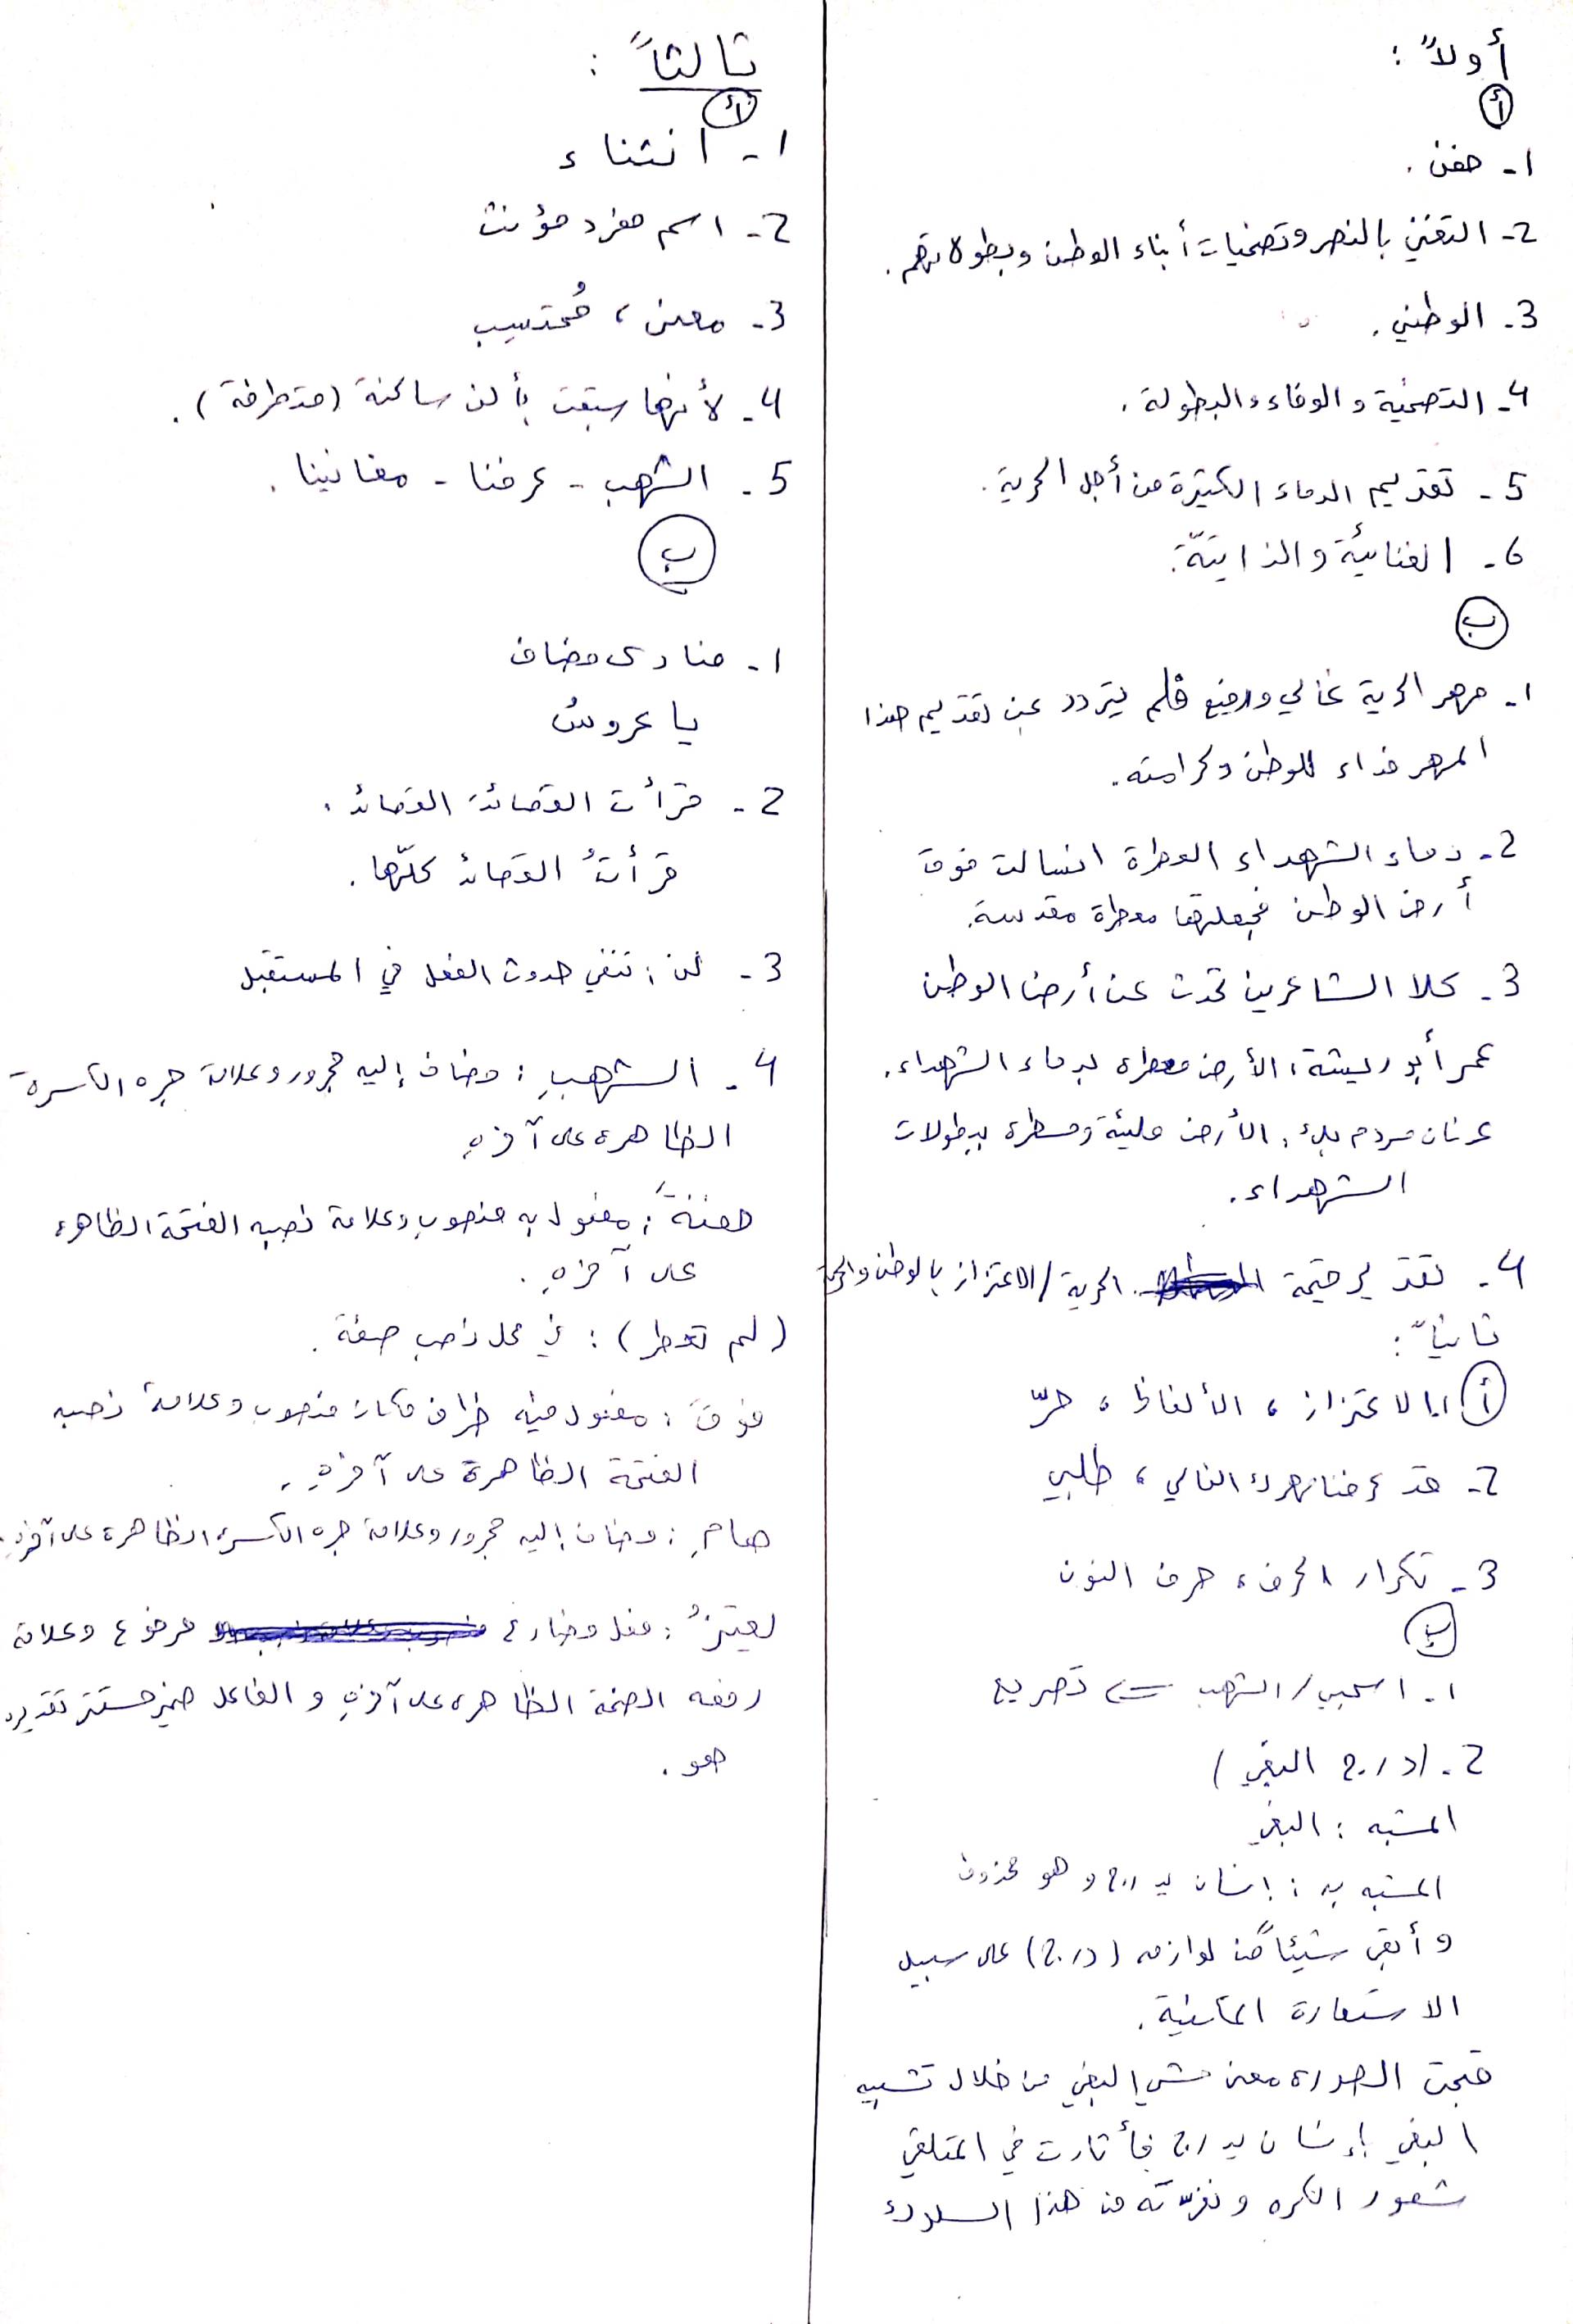 أولاً :
أ
1- حفن .
2- التغني بالنصر وتضحيات أبناء الوطن وبطولاتهم .
3- الوطني .
4- التضحية والوفاء والبطولة .
5- تقديم الدماء الكثيرة من أجل الحرية .
6- الغنائية والذاتيّة .
ب
1- مهر الحرية غالي ورفيع فلم يتردد عن تقديم هذا
المهر فداء للوطن وكرامته .
2- دماء الشهداء العطرة انسالت فوق
أرض الوطن فجعلتها معطرة مقدسة .
3- كلا الشاعرين تحدث عن أرض الوطن
عمر أبو ريشة : الأرض معطرة بدماء الشهداء .
عدنان مردم بك : الأرض مليئة ومسطرة ببطولات
الشهداء .
4- تقدير قيمة الحرية / الاعتزاز بالوطن
ثانياً :
أ 1- الاعتزاز ، الألفاظ ، حرّ
2- قد عرفنا مهرك الغالي ، طلبي
3- تكرار الحرف ، حرف النون
ب
1- اسحبي / الشهب ⇐ تصريع
2- (درج البغي)
المشبه : البغي
المشبه به : إنسان يدرج وهو محذوف
وأبقى شيئاً من لوازمه (درج) على سبيل
الاستعارة المكنية .
قبحت الصورة معنى مشي البغي من خلال تشبيه
البغي بإنسان يدرج فأثارت في المتلقي
شعور الكره ونفرته من هذا السلوك
ثالثاً :
أ
1- انتشاء
2- اسم مفرد مؤنث
3- معنى ، مُحتسِب
4- لأنها سبقت بألف ساكنة (متطرفة) .
5- الشهب - عرفنا - مغانينا .
ب
1- منادى مضاف
يا عروسُ
2- قرأت القصائدَ القصائد .
قرأتُ القصائد كلّها .
3- لن : تنفي حدوث الفعل في المستقبل
4- الشهبِ : مضاف إليه مجرور وعلامة جره الكسرة
الظاهرة على آخرهِ
حفنةً : مفعول به منصوب وعلامة نصبه الفتحة الظاهرة
على آخرهِ .
(لم تعطر) : في محل نصب صفة .
فوقَ : مفعول فيه ظرف مكان منصوب وعلامة نصبه
الفتحة الظاهرة على آخرهِ .
هامِ : مضاف إليه مجرور وعلامة جره الكسرة الظاهرة على آخرهِ .
يعتزُّ : فعل مضارع مرفوع وعلامة
رفعه الضمة الظاهرة على آخرهِ والفاعل ضمير مستتر تقديره
هو .